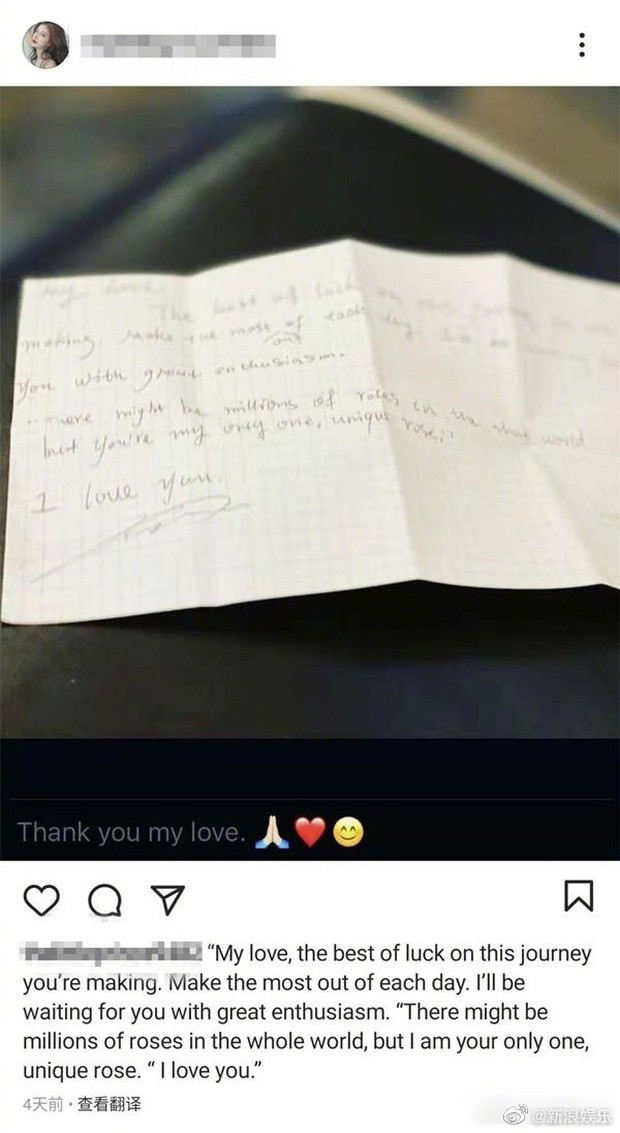 My love
The best of luck on this journey you're
making. Make the most of each day. I'll be waiting for
out
you with great enthusiasm.
"There might be millions of roses in the whole world
but you're my only one, unique rose."
I love you.
Thank you my love. 🙏🏻❤️😊
“My love, the best of luck on this journey
you’re making. Make the most out of each day. I’ll be
waiting for you with great enthusiasm. “There might be
millions of roses in the whole world, but I am your only one,
unique rose. “ I love you.”
4天前 · 查看翻译
@新浪娱乐